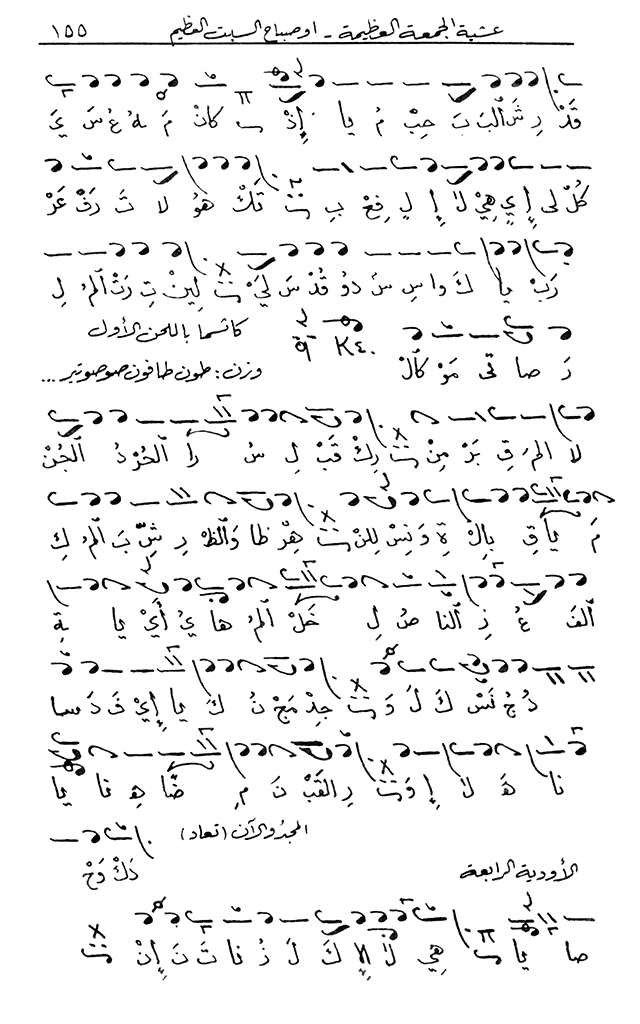 عشية الجمعة العظيمة - او صباح السبت العظيم ١٥٥
قَدْ رِ شَ الْبَ بَ حِبْ مُ يا إِذْ ت كانْ مَ هُ عُ سَ يَ
كُلْ لى إِي هِيْ لا إِ لِ فِعْ بِ ت تَكْ هُوْ لا تَ رَفْ عَرْ
رَبْ يا كَ واسِ سَ دُو قُدْ سَ لَيْ ت لِيْنْ تِ رَتْ الْمُ لِ
كاشما باللحن الأول
دَ صا قى مَرْ كَالْ
وزن: طون طافون صوصوتير...
لا الْمَ قِ بَرْ مِنْ ت رِكْ قَبْ لِ سُ رّا الْحُرْ دُ الْجُنْ
مَ ياقِ بِالْ ةِ وَنِسْ لِلنْ ت هِرْ ظا وَالظْ رِ شِّ بَ الْمُ كِ
الْفَ عُ زِ النّا صُ لِ خَلْ الْمُ هَا يُ أَيْ يا ةِ
دُ جُ نَسْ كَ لَ وَ ت جِدْ مَجْ نُ كَ يا إِيْ قَ دَ سا
نا هَ لا إِ وَ ت رِ الْقَبْ نَ مِ ضّا هِ فا يا
المجد والآن (تعاد)
ذَكْ وَحْ
الأودية الرابعة
صا يا ت هِي لا إِ كَ لَ ذُ نا تَ نَ إِنْ ت